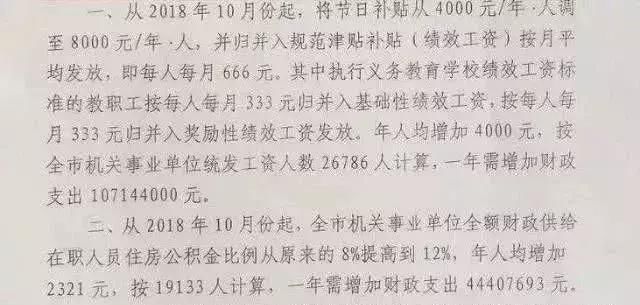 一、从 2018 年 10 月份起，将节日补贴从 4000 元/年·人调
至 8000 元/年·人，并归并入规范津贴补贴（绩效工资）按月平
均发放，即每人每月 666 元。其中执行义务教育学校绩效工资标
准的教职工按每人每月 333 元归并入基础性绩效工资，按每人每
月 333 元归并入奖励性绩效工资发放。年人均增加 4000 元，按
全市机关事业单位统发工资人数 26786 人计算，一年需增加财政
支出 107144000 元。
二、从 2018 年 10 月份起，全市机关事业单位全额财政供给
在职人员住房公积金比例从原来的 8%提高到 12%，年人均增加
2321 元，按 19133 人计算，一年需增加财政支出 44407693 元。